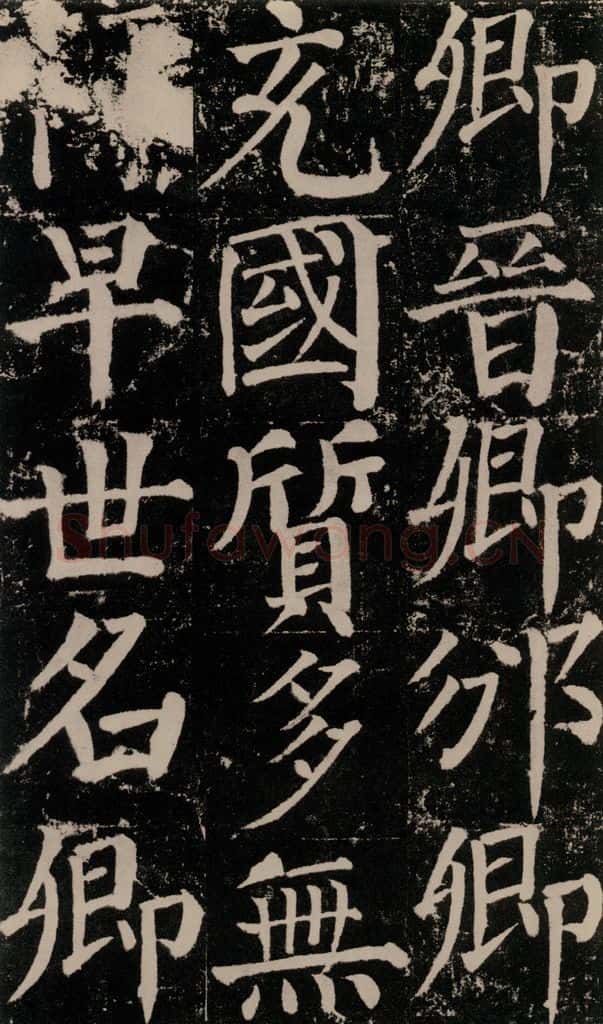 卿晉卿邠卿
充國質多無
早世名卿
Shufawang.CN